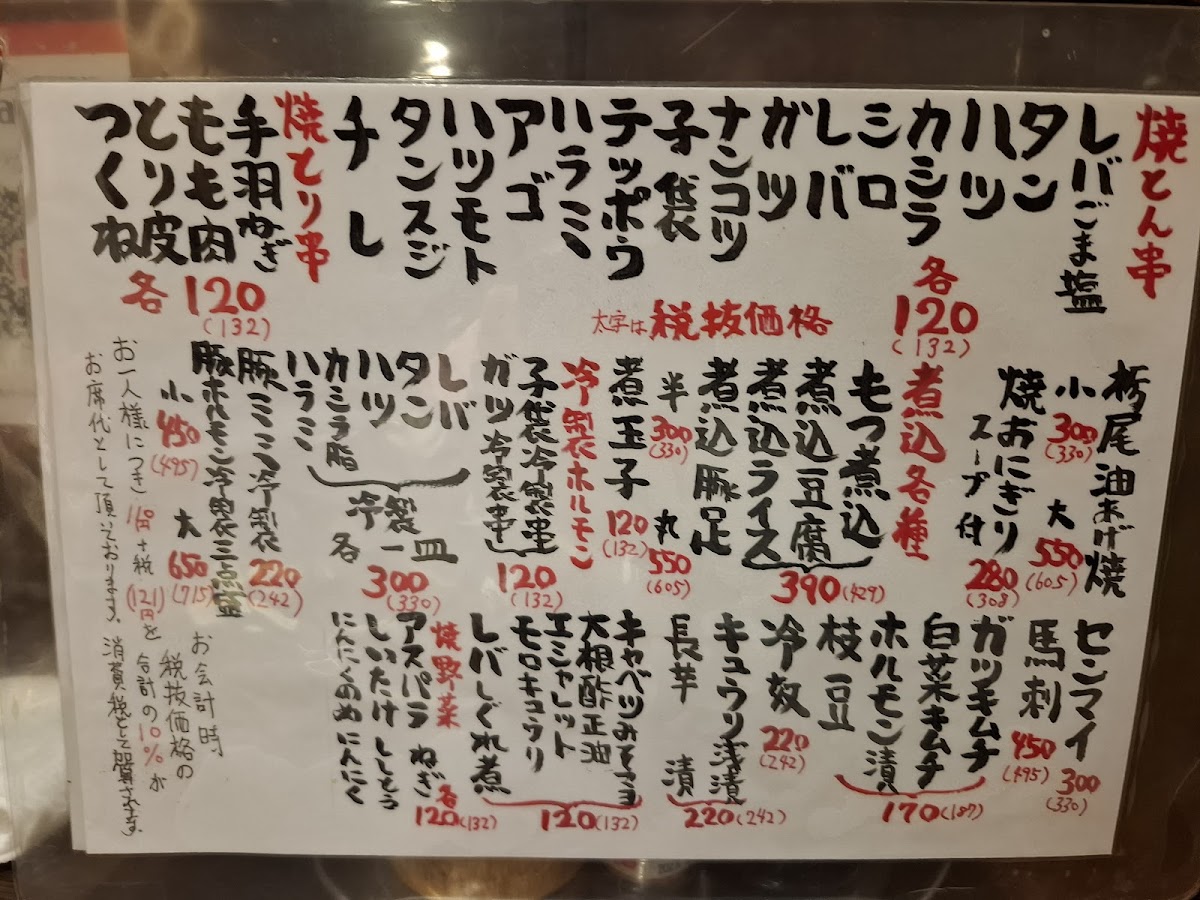 焼とん串
レバごま塩
タン
ハツ
カシラ
シロ
レバ
ガツ
ナンコツ
子袋
テッポウ
ハラミ
アゴ
ハツモト
タンスジ
チレ
各120
(132)
太字は税抜価格
焼とり串
手羽ねぎ
もも肉
とり皮
つくね
各120
(132)
栃尾油あげ焼
小300 大550
(330) (605)
焼おにぎり
スープ付
280
(308)
煮込各種
もつ煮込
煮込豆腐
煮込ライス
390(429)
煮込豚足
半300 丸550
(330) (605)
煮玉子120
(132)
冷製ホルモン
子袋冷製串
ガツ冷製串
120
(132)
レバ
タン
ハツ
カシラ脂
ハラミ
冷製一皿
各300
(330)
豚ミミ冷製220
(242)
豚ホルモン冷製三点盛
小450 大650
(495) (715)
センマイ300
(330)
馬刺450
(495)
ガツキムチ
白菜キムチ
ホルモン漬
枝豆
170(187)
冷奴220
(242)
キュウリ浅漬
長芋漬
220(242)
キャベツみそマヨ
大根酢正油
エシャレット
モロキュウリ
レバしぐれ煮
120(132)
焼野菜 各120(132)
アスパラ ねぎ
しいたけ ししとう
にんにくのめ にんにく
お一人様につき110円+税(121円)を
お席代として頂いております。
お会計時
税抜価格の
合計の10%が
消費税として加算されます。